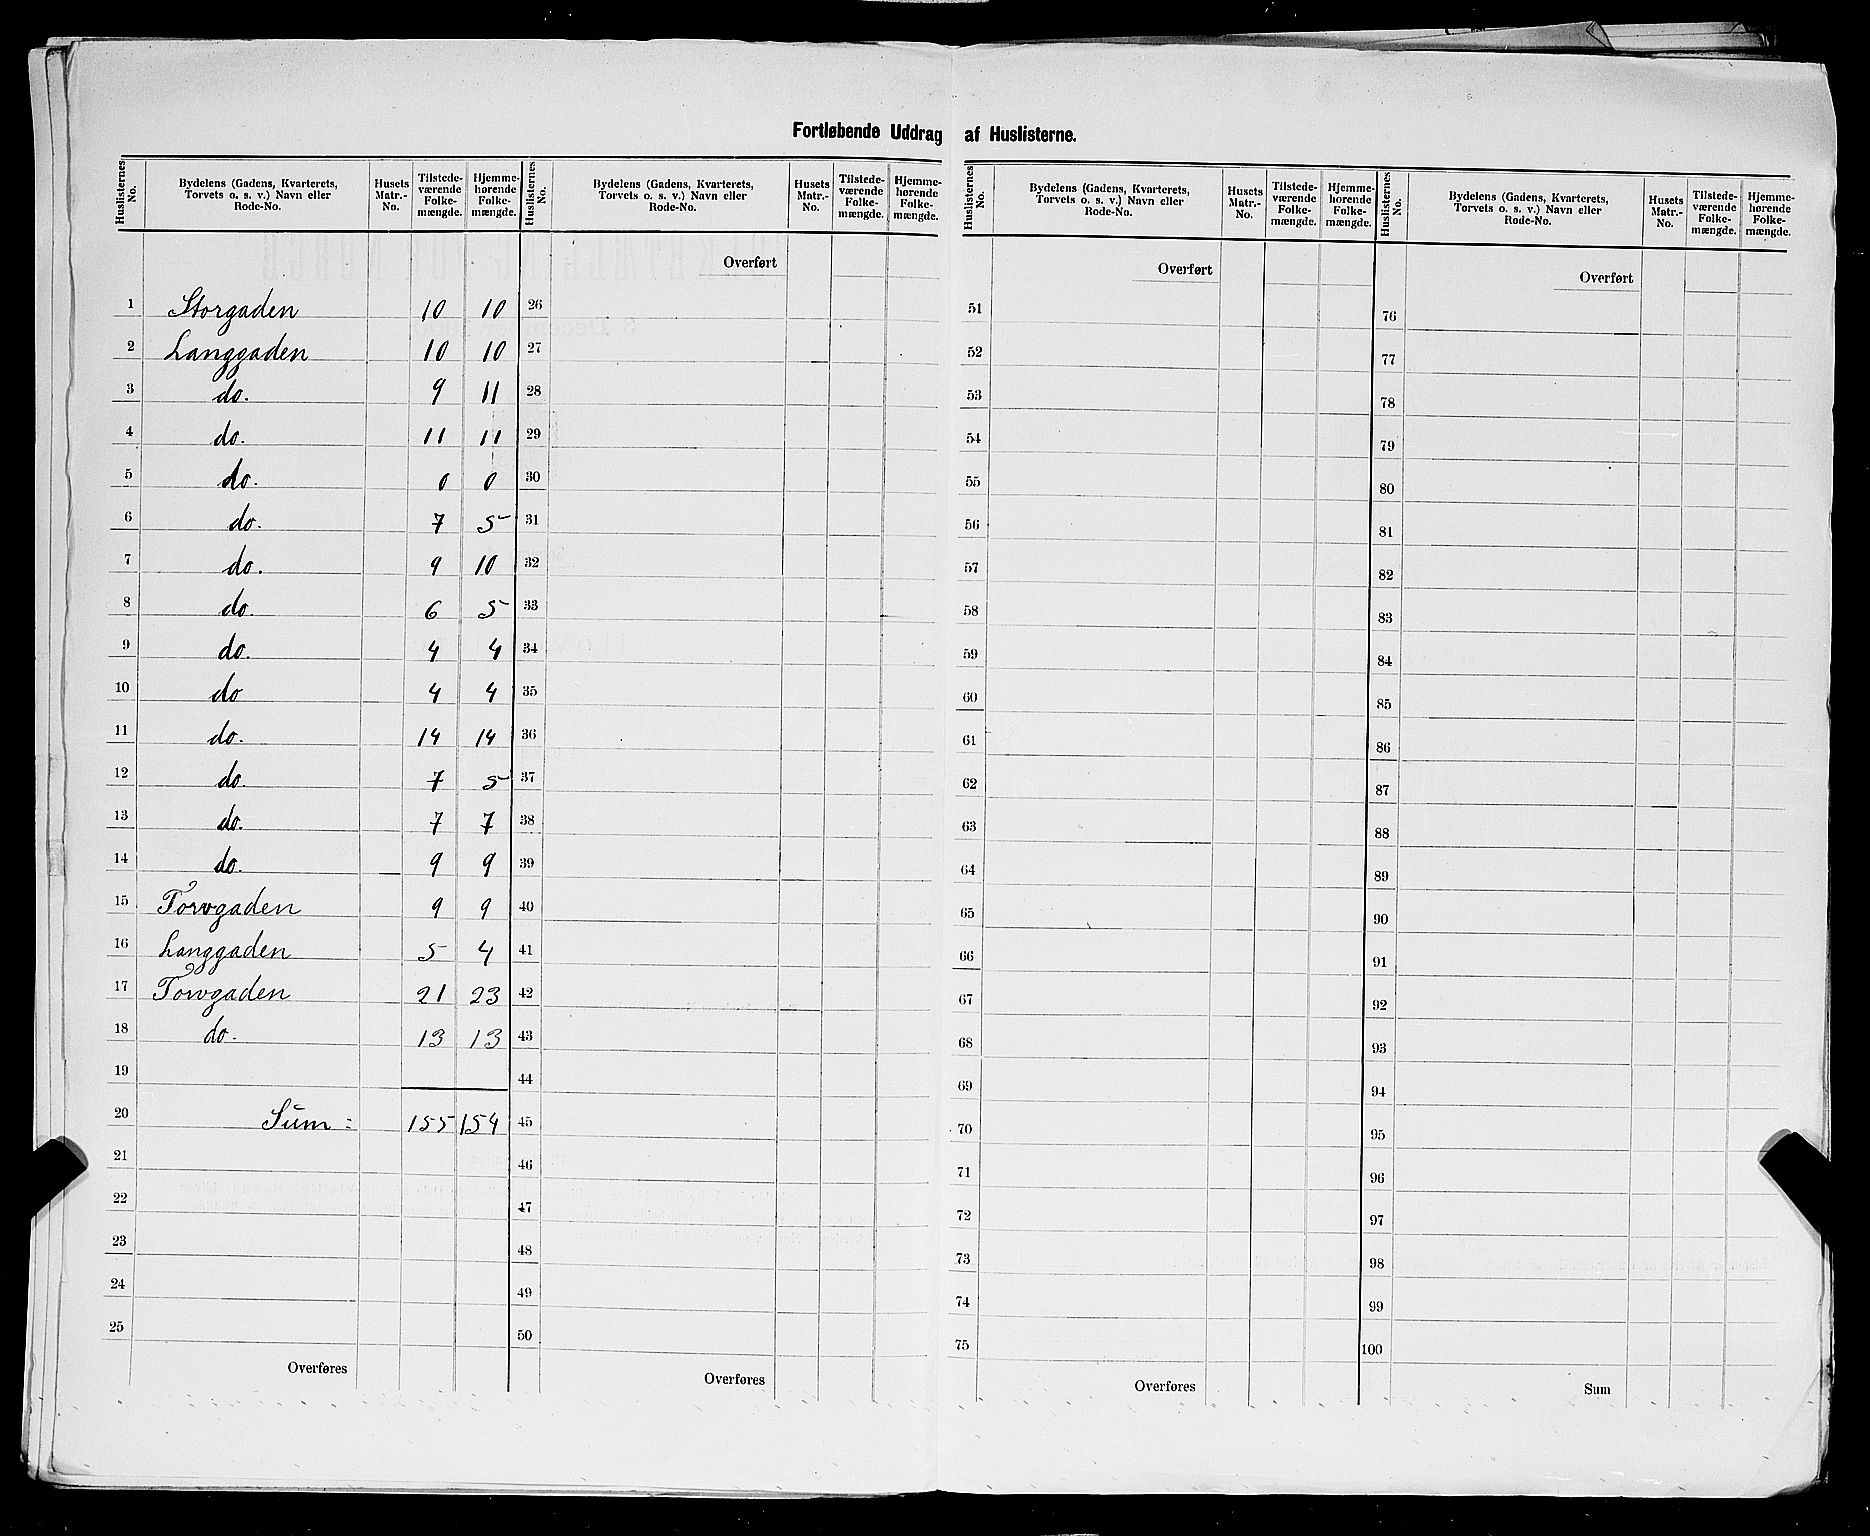 Fortløbende Uddrag af Huslisterne.
Huslisternes No. | Bydelens (Gadens, Kvarterets, Torvets o. s. v.) Navn eller Rode-No. | Husets Matr.-No. | Tilstede-værende Folke-mængde. | Hjemme-hørende Folke-mængde.
1 Storgaden 10 10
2 Langgaden 10 10
3 do. 9 11
4 do. 11 11
5 do. 0 0
6 do. 7 5
7 do. 9 10
8 do. 6 5
9 do. 4 4
10 do 4 4
11 do. 14 14
12 do. 7 5
13 do. 7 7
14 do. 9 9
15 Torvgaden 9 9
16 Langgaden 5 4
17 Torvgaden 21 23
18 do. 13 13
19
20 Sum = 155 154
21
22
23
24
25
Overføres
Huslisternes No. | Bydelens (Gadens, Kvarterets, Torvets o. s. v.) Navn eller Rode-No. | Husets Matr.-No. | Tilstede-værende Folke-mængde. | Hjemme-hørende Folke-mængde.
Overført
26
27
28
29
30
31
32
33
34
35
36
37
38
39
40
41
42
43
44
45
46
47
48
49
50
Overføres
Huslisternes No. | Bydelens (Gadens, Kvarterets, Torvets o. s. v.) Navn eller Rode-No. | Husets Matr.-No. | Tilstede-værende Folke-mængde. | Hjemme-hørende Folke-mængde.
Overført
51
52
53
54
55
56
57
58
59
60
61
62
63
64
65
66
67
68
69
70
71
72
73
74
75
Overføres
Huslisternes No. | Bydelens (Gadens, Kvarterets, Torvets o. s. v.) Navn eller Rode-No. | Husets Matr.-No. | Tilstede-værende Folke-mængde. | Hjemme-hørende Folke-mængde.
Overført
76
77
78
79
80
81
82
83
84
85
86
87
88
89
90
91
92
93
94
95
96
97
98
99
100
Sum